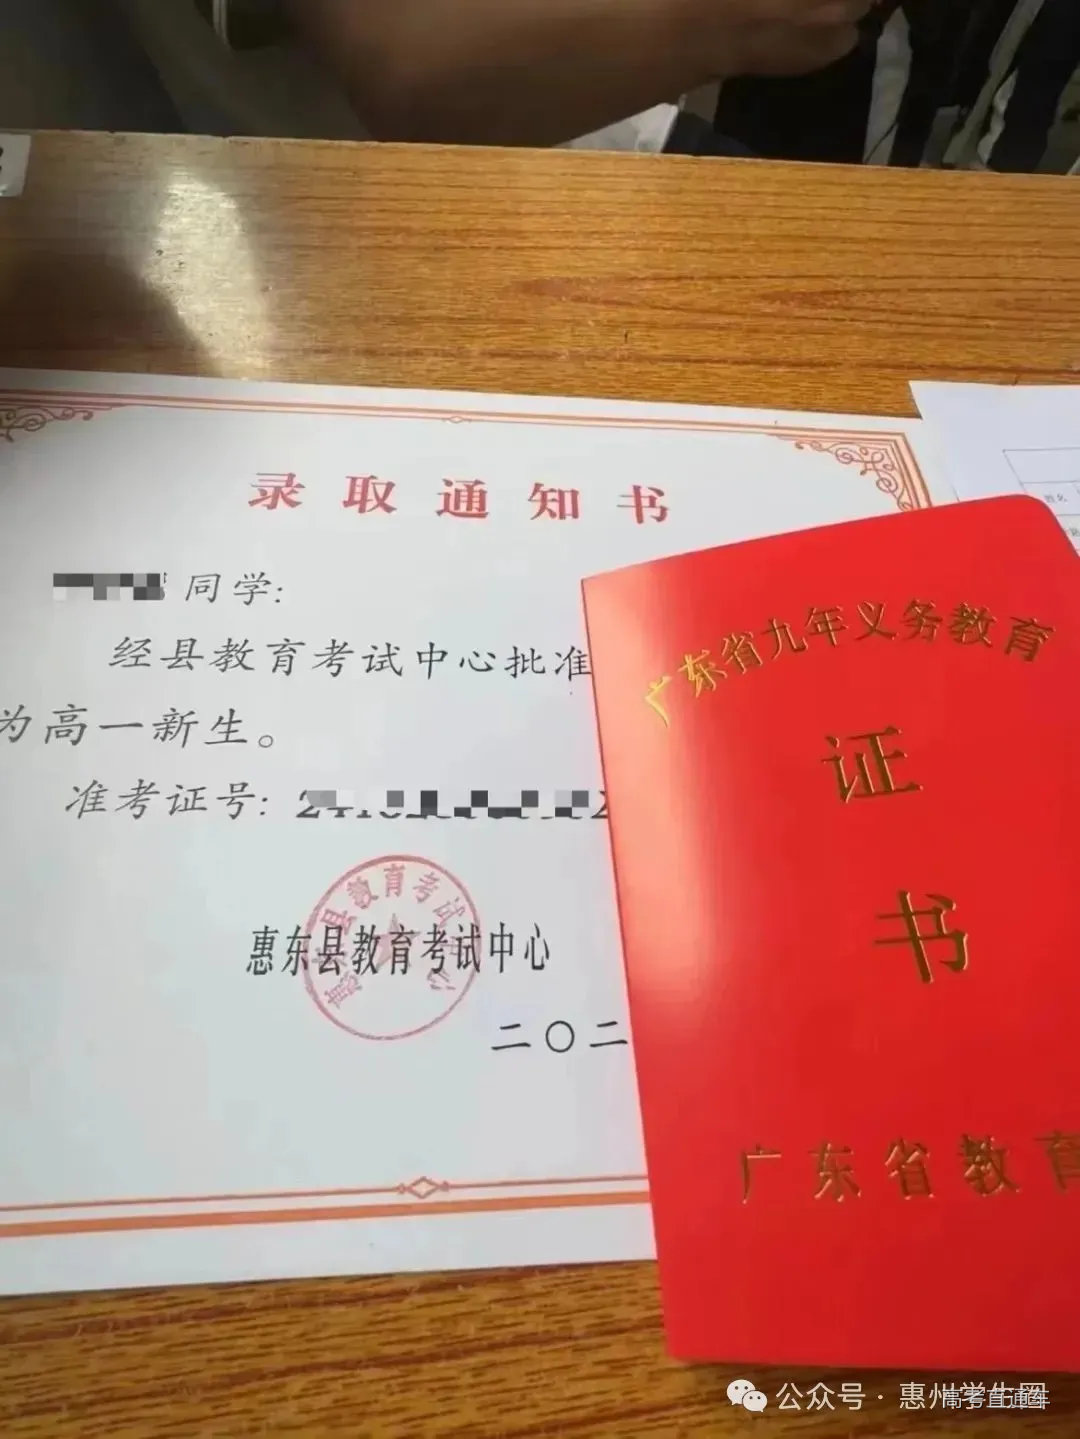 录取通知书
同学:
经县教育考试中心批准
为高一新生。
准考证号:
惠东县教育考试中心
惠东县教育考试中心
二〇二
广东省九年义务教育
证
书
广东省教育
姓名
公众号 · 惠州学生圈
高考直通车